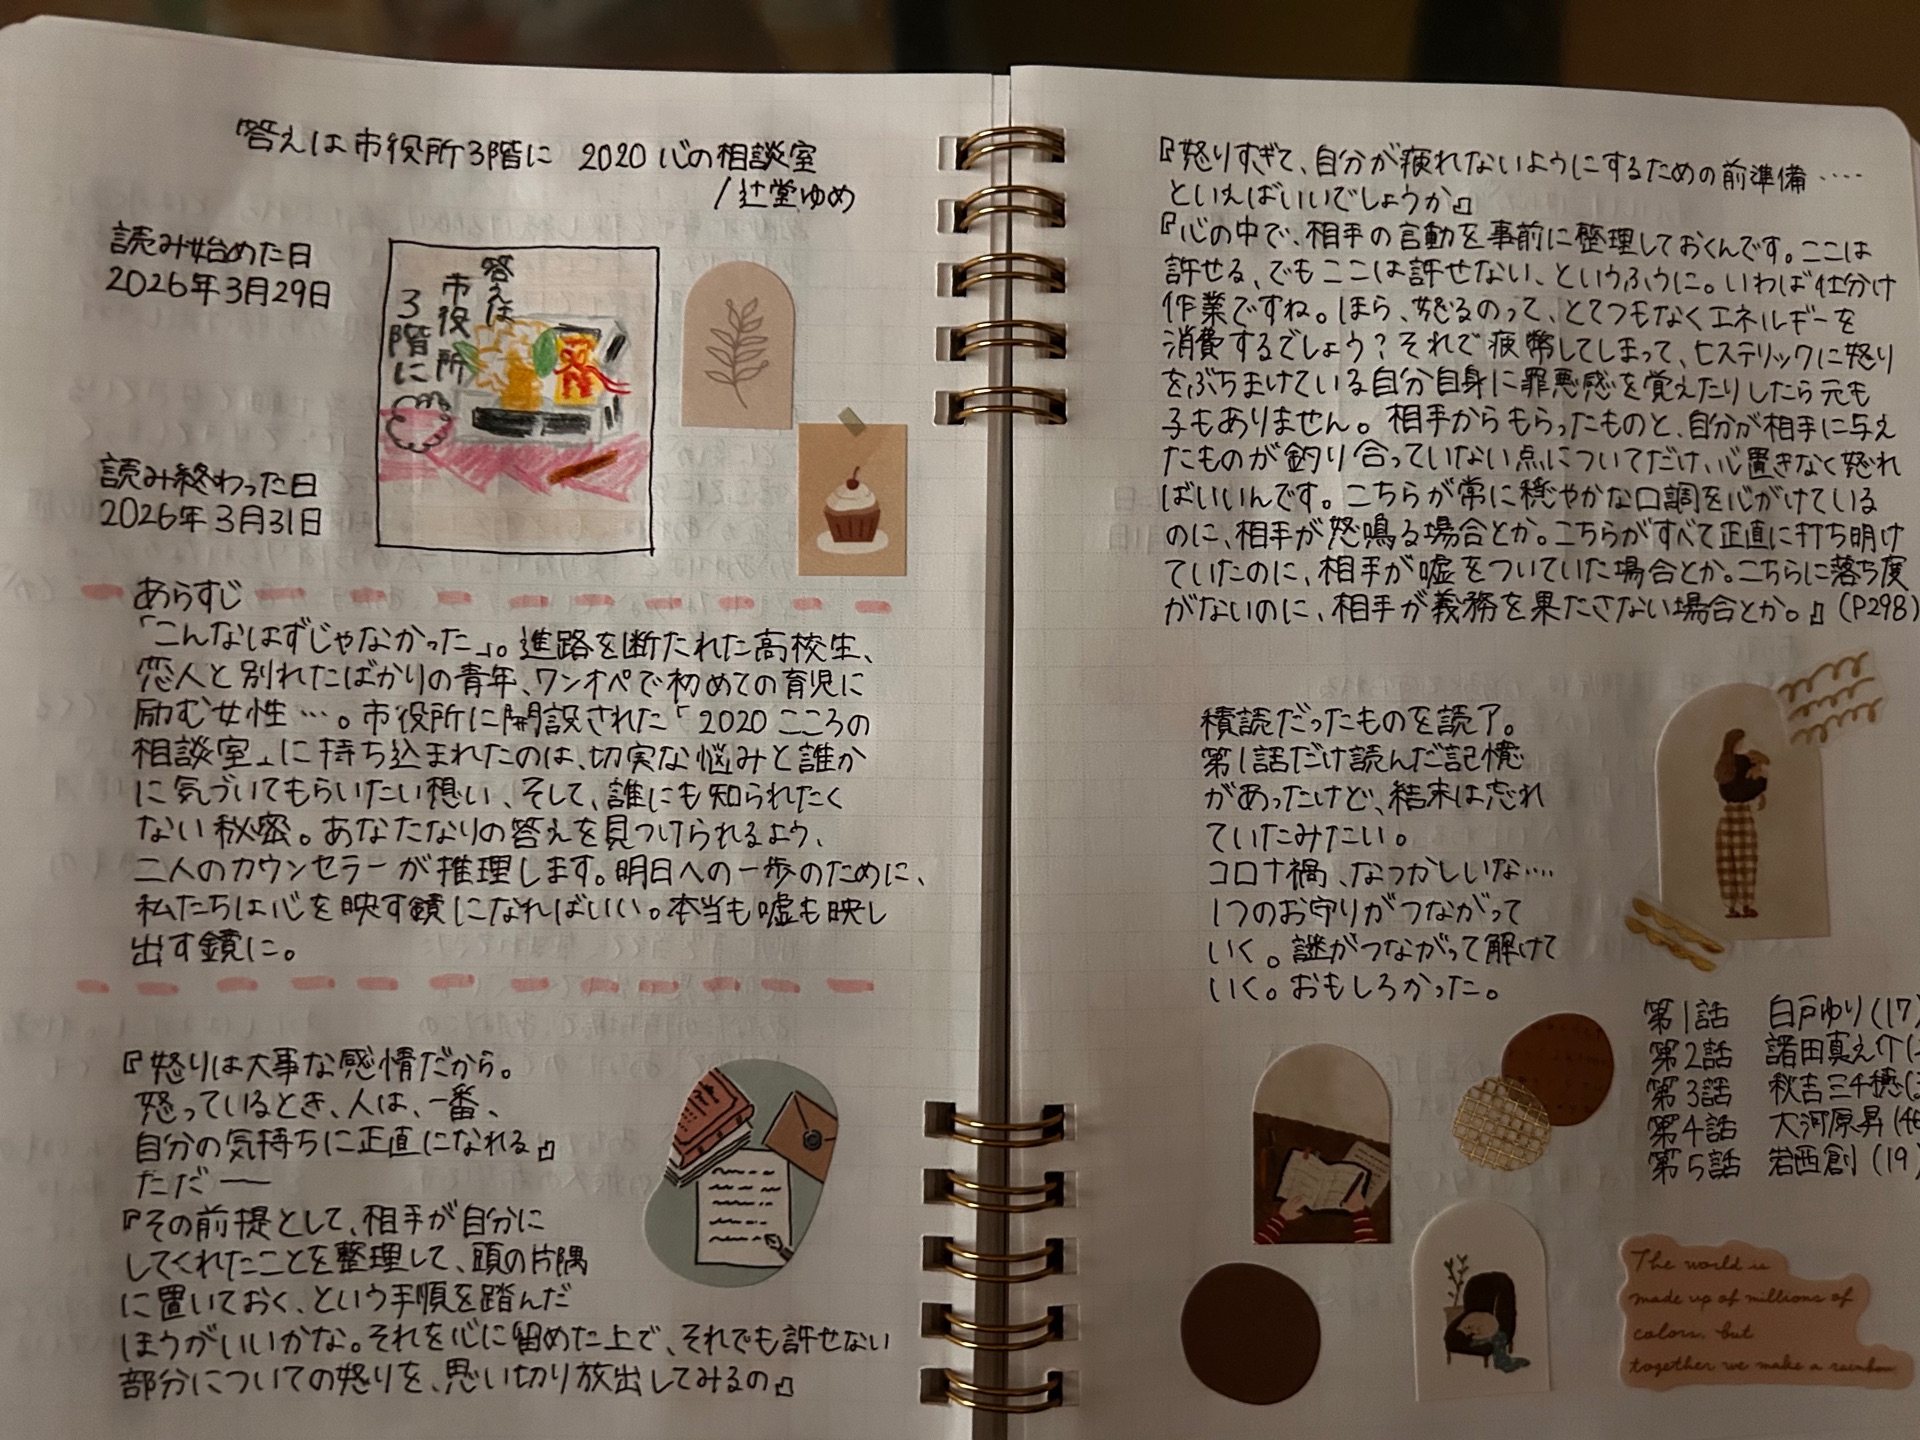 答えは市役所3階に 2020 心の相談室
/辻堂ゆめ
読み始めた日
2026年3月29日
答えは
市役所
3階に
読み終わった日
2026年3月31日
あらすじ
「こんなはずじゃなかった」。進路を断たれた高校生、
恋人と別れたばかりの青年、ワンオペで初めての育児に
励む女性…。市役所に開設された「2020こころの
相談室」に持ち込まれたのは、切実な悩みと誰か
に気づいてもらいたい想い、そして、誰にも知られたく
ない秘密。あなたなりの答えを見つけられるよう、
二人のカウンセラーが推理します。明日への一歩のために、
私たちは心を映す鏡になればいい。本当も嘘も映し
出す鏡に。
『怒りは大事な感情だから。
怒っているとき、人は、一番、
自分の気持ちに正直になれる』
ただ——
『その前提として、相手が自分に
してくれたことを整理して、頭の片隅
に置いておく、という手順を踏んだ
ほうがいいかな。それを心に留めた上で、それでも許せない
部分についての怒りを、思い切り放出してみるの』
『怒りすぎて、自分が疲れないようにするための前準備‥‥
といえばいいでしょうか』
『心の中で、相手の言動を事前に整理しておくんです。ここは
許せる、でもここは許せない、というふうに。いわば仕分け
作業ですね。ほら、怒るのって、とてつもなくエネルギーを
消費するでしょう?それで疲弊してしまって、ヒステリックに怒り
をぶちまけている自分自身に罪悪感を覚えたりしたら元も
子もありません。相手からもらったものと、自分が相手に与え
たものが釣り合っていない点についてだけ、心置きなく怒れ
ばいいんです。こちらが常に穏やかな口調を心がけている
のに、相手が怒鳴る場合とか。こちらがすべて正直に打ち明け
ていたのに、相手が嘘をついていた場合とか。こちらに落ち度
がないのに、相手が義務を果たさない場合とか。』(P298)
積読だったものを読了。
第1話だけ読んだ記憶
があったけど、結末は忘れ
ていたみたい。
コロナ禍、なつかしいな‥‥
1つのお守りがつながって
いく。謎がつながって解けて
いく。おもしろかった。
第1話 白戸ゆり(17)
第2話 諸田真之介
第3話 秋吉三千穂
第4話 大河原昇(46
第5話 岩西創(19)
The world is
made up of millions of
colors, but
together we make a rainbow